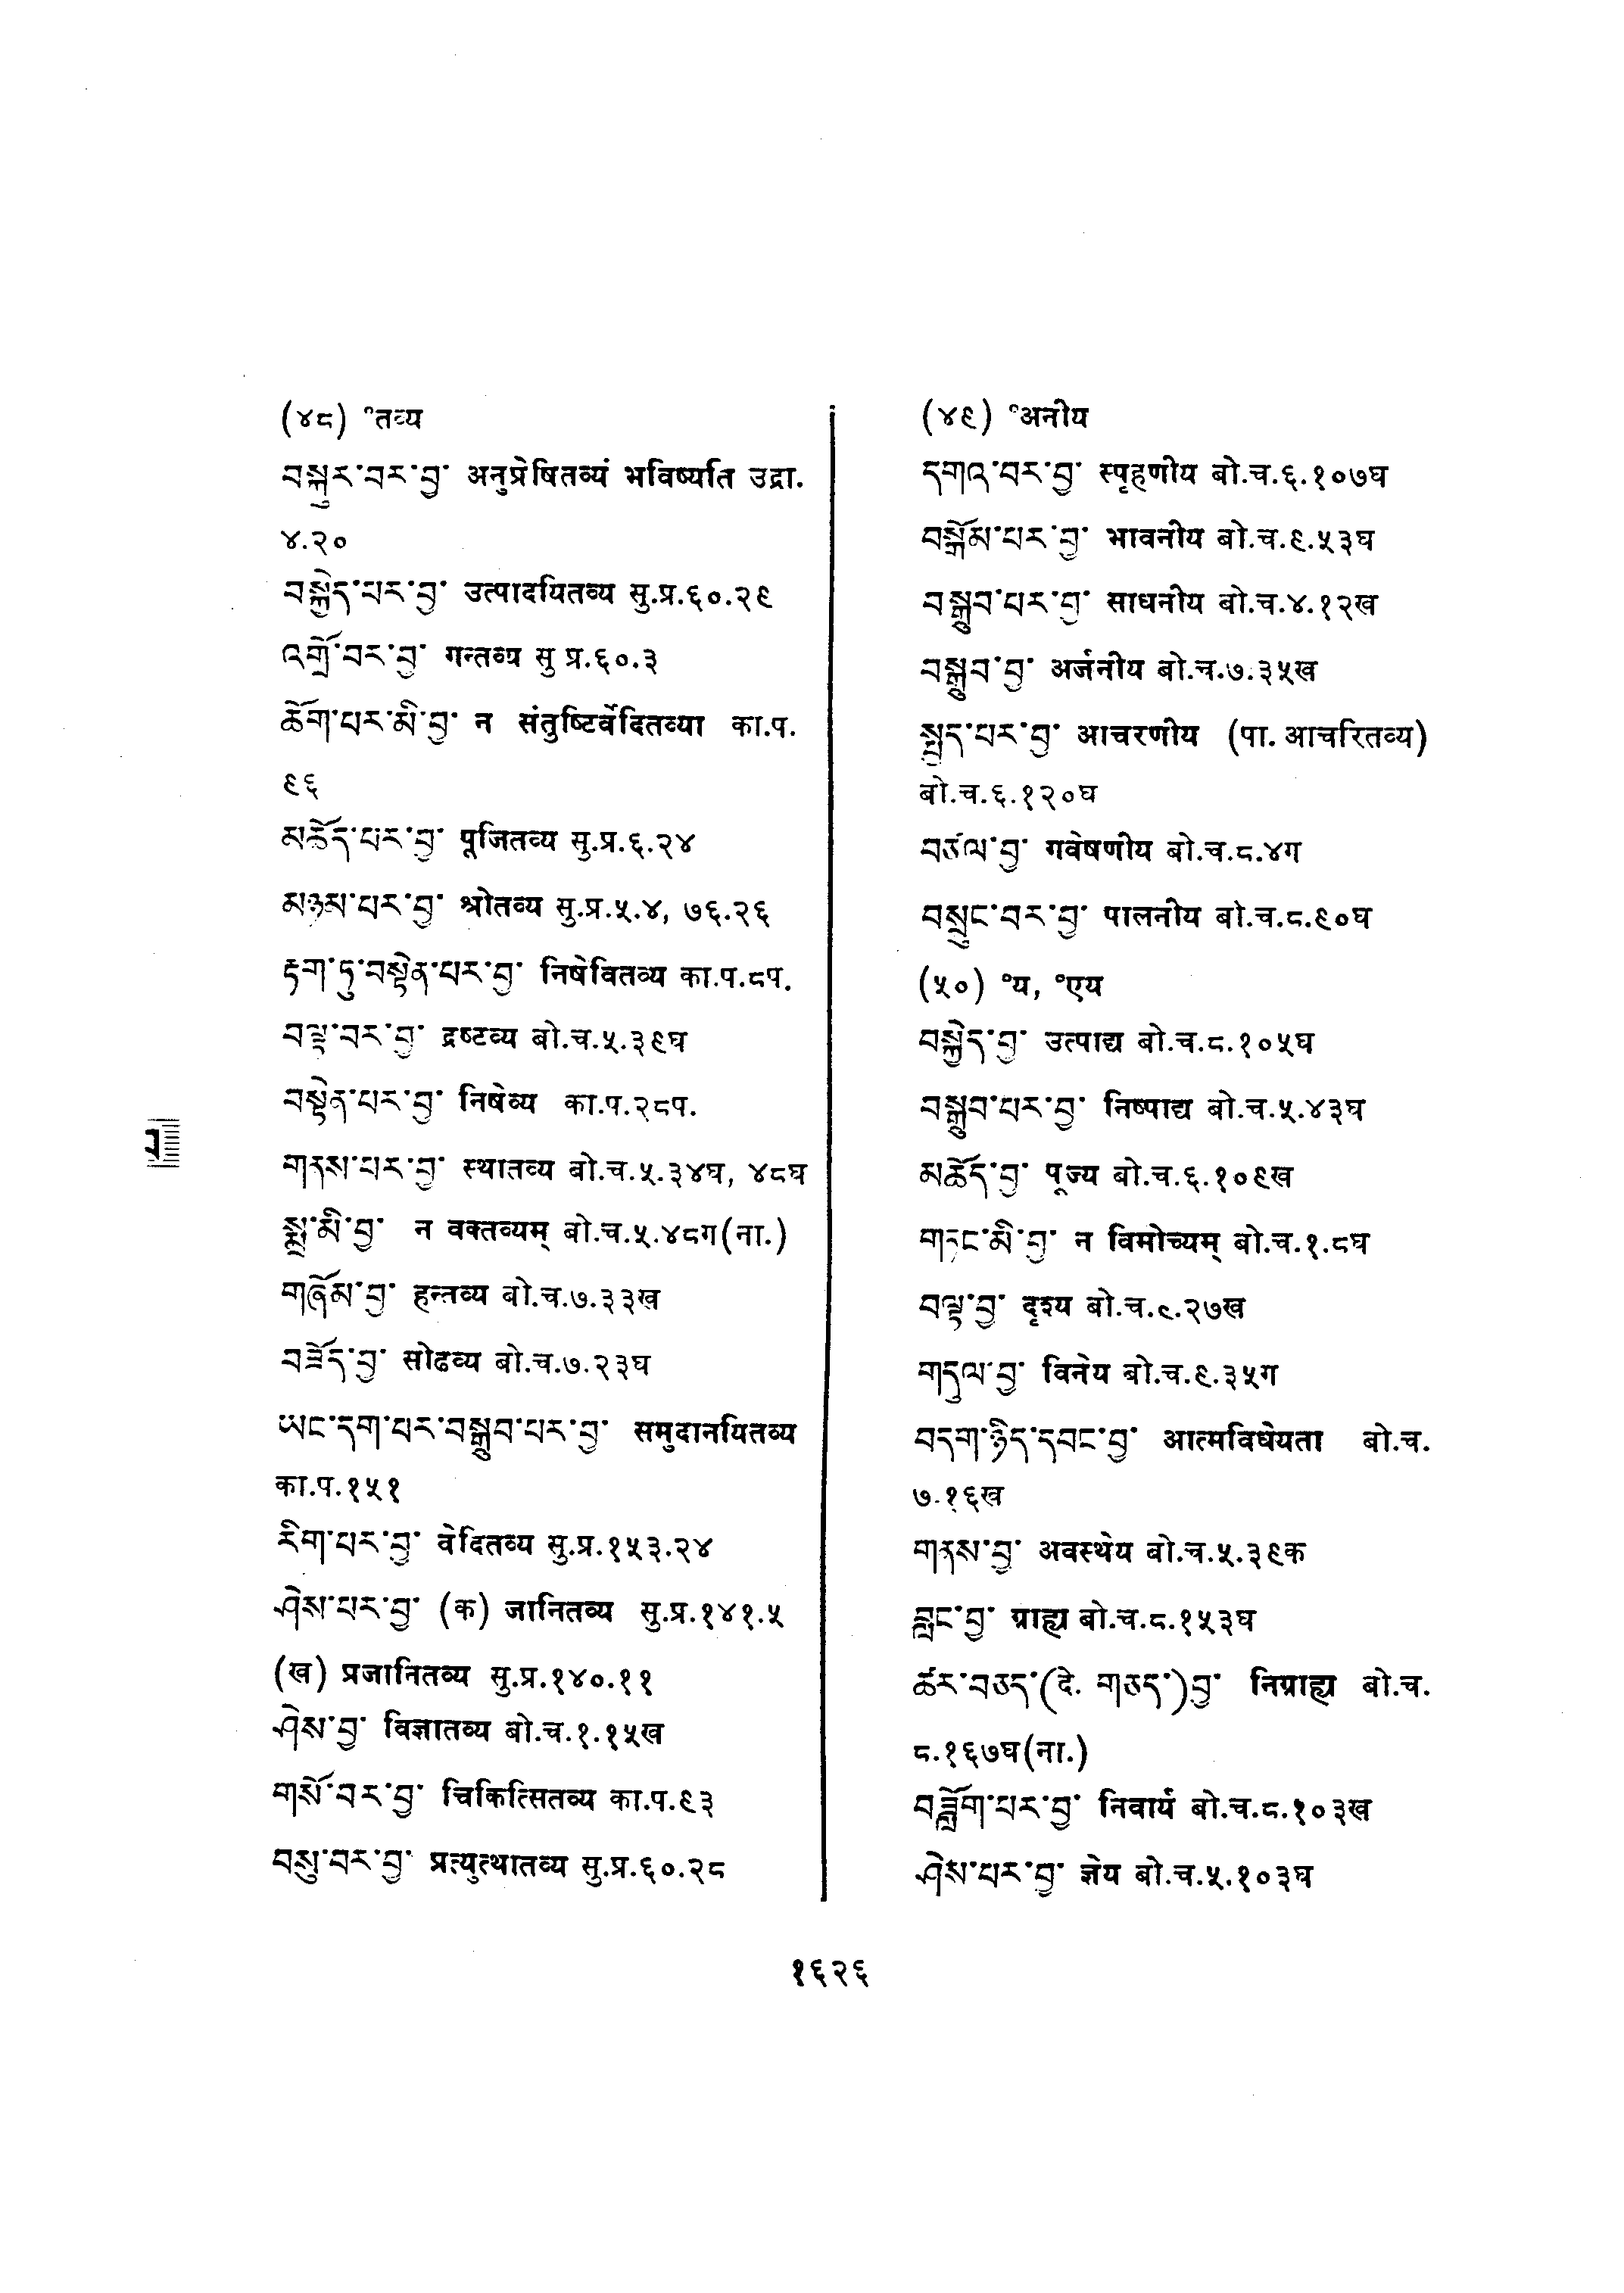 (४८) °तव्य
བསྐུར་བར་བྱ་ अनुप्रेषितव्यं भविष्यति उद्रा.
४.२०
བསྐྱེད་པར་བྱ་ उत्पादयितव्य सु.प्र.६०.२९
འགྲོ་བར་བྱ་ गन्तव्य सु प्र.६०.३
ཆོག་པར་མི་བྱ་ न संतुष्टिर्वेदितव्या का.प.
९६
མཆོད་པར་བྱ་ पूजितव्य सु.प्र.६.२४
མཉམ་པར་བྱ་ श्रोतव्य सु.प्र.५.४, ७६.२६
རྟག་ཏུ་བསྟེན་པར་བྱ་ निषेवितव्य का.प.८प.
བལྟ་བར་བྱ་ द्रष्टव्य बो.च.५.३९घ
བསྟེན་པར་བྱ་ निषेव्य का.प.२८प.
གནས་པར་བྱ་ स्थातव्य बो.च.५.३४घ, ४८घ
སྨྲ་མི་བྱ་ न वक्तव्यम् बो.च.५.४८ग(ना.)
གཞོམ་བྱ་ हन्तव्य बो.च.७.३३ख
བཟོད་བྱ་ सोढव्य बो.च.७.२३घ
ཡང་དག་པར་བསྒྲུབ་པར་བྱ་ समुदानयितव्य
का.प.१५१
རིག་པར་བྱ་ वेदितव्य सु.प्र.१५३.२४
ཤེས་པར་བྱ་ (क) जानितव्य सु.प्र.१४१.५
(ख) प्रजानितव्य सु.प्र.१४०.११
ཤེས་བྱ་ विज्ञातव्य बो.च.१.१५ख
གསོ་བར་བྱ་ चिकित्सितव्य का.प.९३
བསུ་བར་བྱ་ प्रत्युत्थातव्य सु.प्र.६०.२८
(४९) °अनीय
དགའ་བར་བྱ་ स्पृहणीय बो.च.६.१०७घ
བསྒོམ་པར་བྱ་ भावनीय बो.च.९.५३घ
བསྒྲུབ་པར་བྱ་ साधनीय बो.च.४.१२ख
བསྒྲུབ་བྱ་ अर्जनीय बो.च.७.३५ख
སྤྱད་པར་བྱ་ आचरणीय (पा. आचरितव्य)
बो.च.६.१२०घ
བཙལ་བྱ་ गवेषणीय बो.च.८.४ग
བསྲུང་བར་བྱ་ पालनीय बो.च.८.९०घ
(५०) °य, °एय
བསྐྱེད་བྱ་ उत्पाद्य बो.च.८.१०५घ
བསྒྲུབ་པར་བྱ་ निष्पाद्य बो.च.५.४३घ
མཆོད་བྱ་ पूज्य बो.च.६.१०९ख
གཏང་མི་བྱ་ न विमोच्यम् बो.च.१.८घ
བལྟ་བྱ་ दृश्य बो.च.९.२७ख
གདུལ་བྱ་ विनेय बो.च.९.३५ग
བདག་ཉིད་དབང་བྱ་ आत्मविधेयता बो.च.
७.१६ख
གནས་བྱ་ अवस्थेय बो.च.५.३९क
བླང་བྱ་ ग्राह्य बो.च.८.१५३घ
ཚར་བཅད་(दे. གཅད་)བྱ་ निग्राह्य बो.च.
८.१६७घ(ना.)
བཟློག་པར་བྱ་ निवार्य बो.च.८.१०३ख
ཤེས་པར་བྱ་ ज्ञेय बो.च.५.१०३घ
१६२६